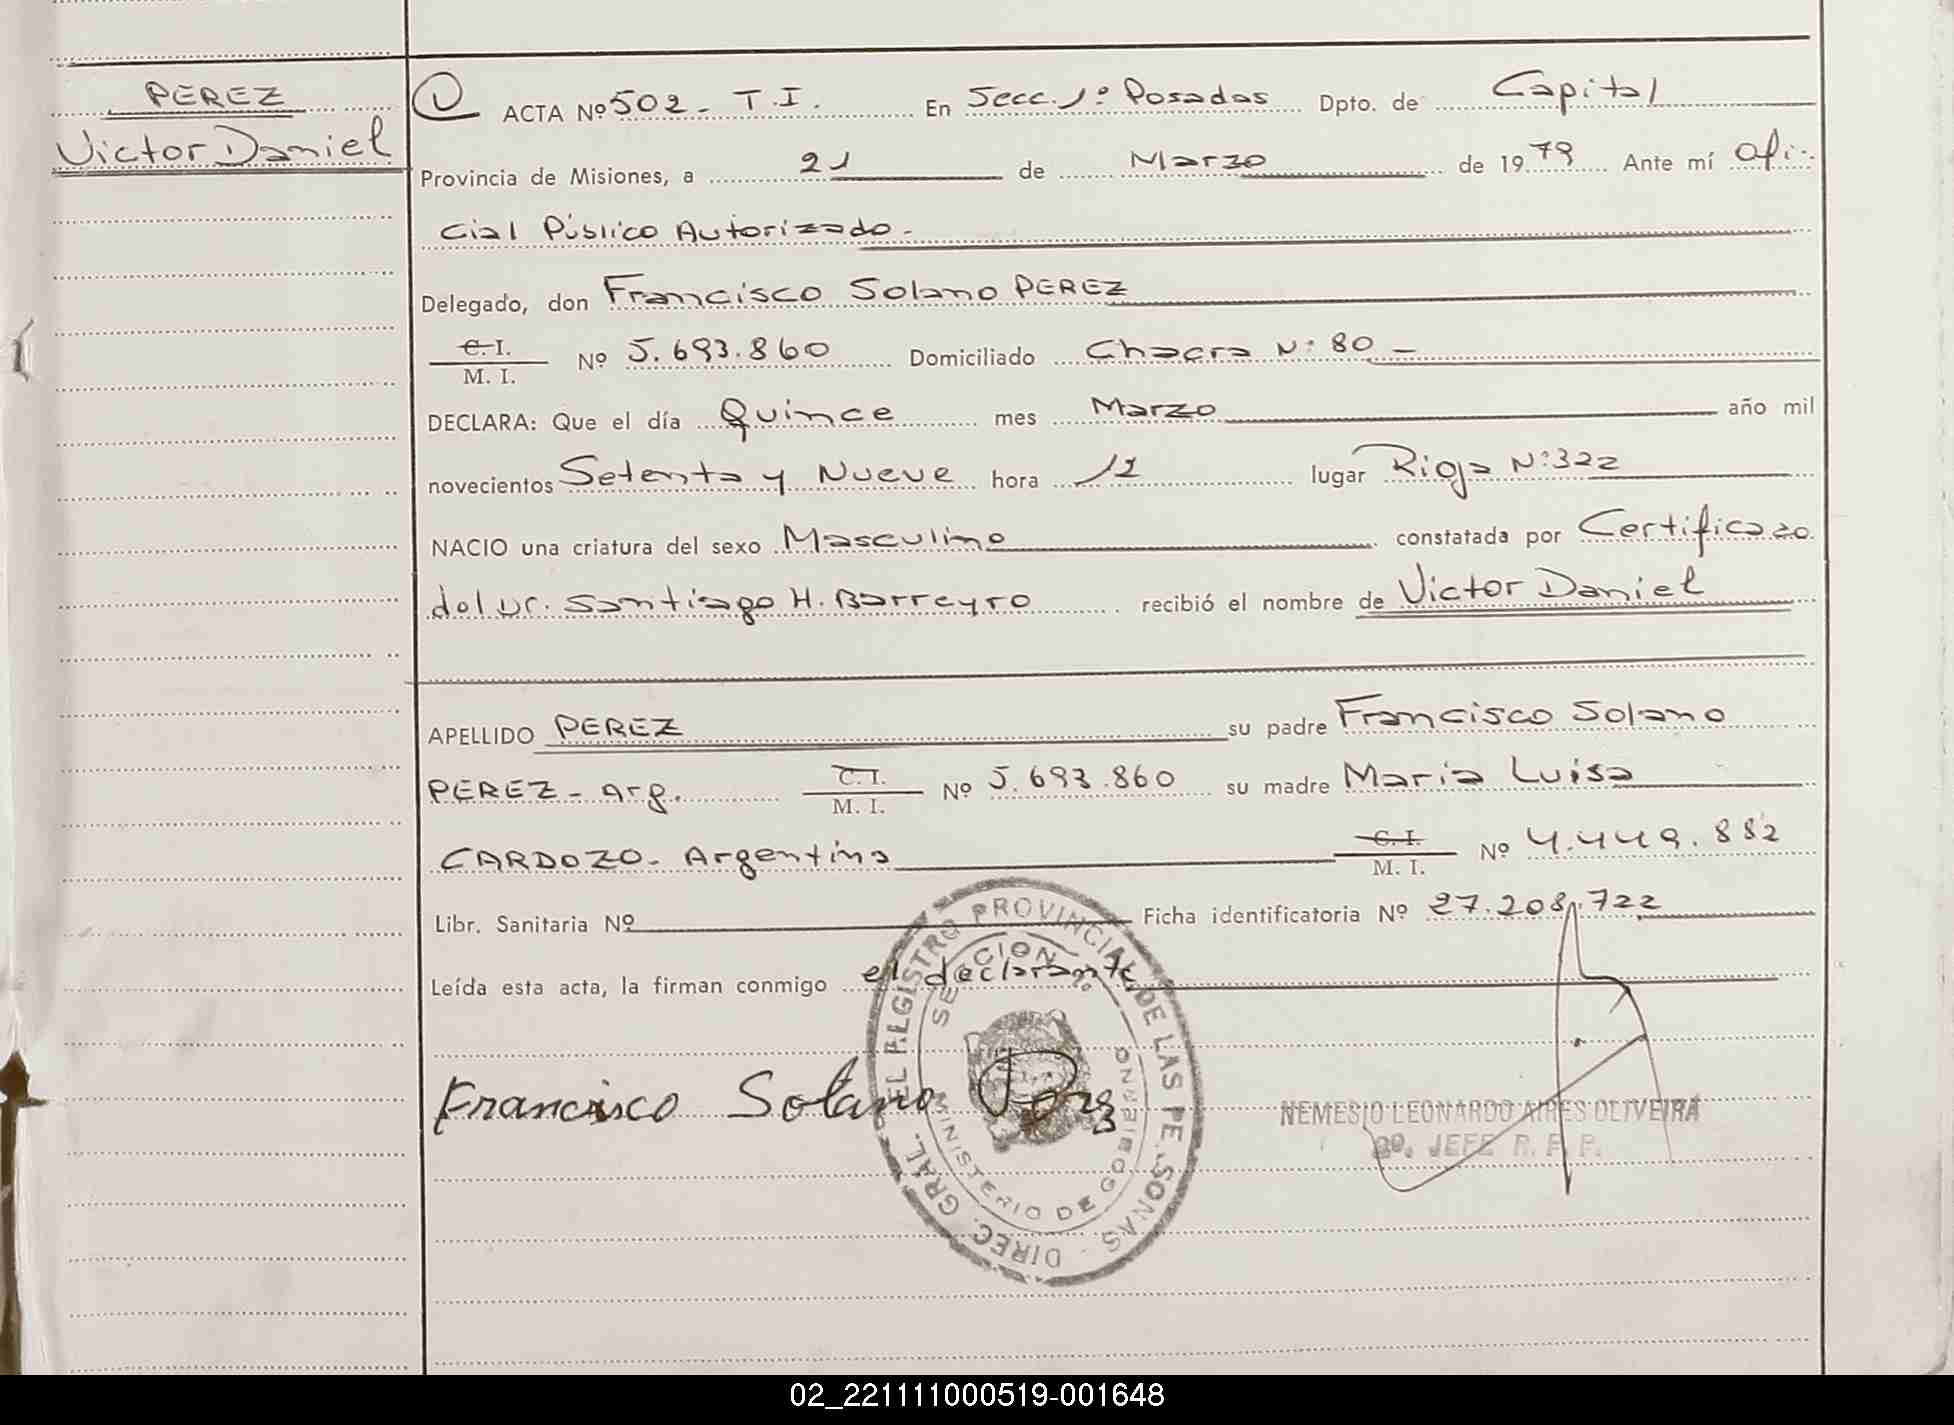 PEREZ
Victor Daniel
ACTA Nº 502 - T.I. En Secc. 1º Posadas Dpto. de Capital
Provincia de Misiones, a 21 de Marzo de 1979 Ante mí Ofi-
cial Público Autorizado.-
Delegado, don Francisco Solano PEREZ
C. I.
M. I. Nº 5.693.860 Domiciliado Chacra Nº 80 -
DECLARA: Que el día Quince mes Marzo año mil
novecientos Setenta y Nueve hora 12 lugar Rioja Nº 322
NACIO una criatura del sexo Masculino constatada por Certificado
del Dr. Santiago H. Barreyro recibió el nombre de Victor Daniel
APELLIDO PEREZ su padre Francisco Solano
PEREZ - Arg. C. I.
M. I. Nº 5.693.860 su madre Maria Luisa
CARDOZO - Argentina C. I.
M. I. Nº 4.449.882
Libr. Sanitaria Nº Ficha identificatoria Nº 27.208.722
Leída esta acta, la firman conmigo el declarante
Francisco Solano Perez
DIREC. GRAL. DEL REGISTRO PROVINCIAL DE LAS PERSONAS
SECCION
MINISTERIO DE GOBIERNO
NEMESIO LEONARDO AIRES OLIVEIRA
2º. JEFE R. P. P.
02_221111000519-001648